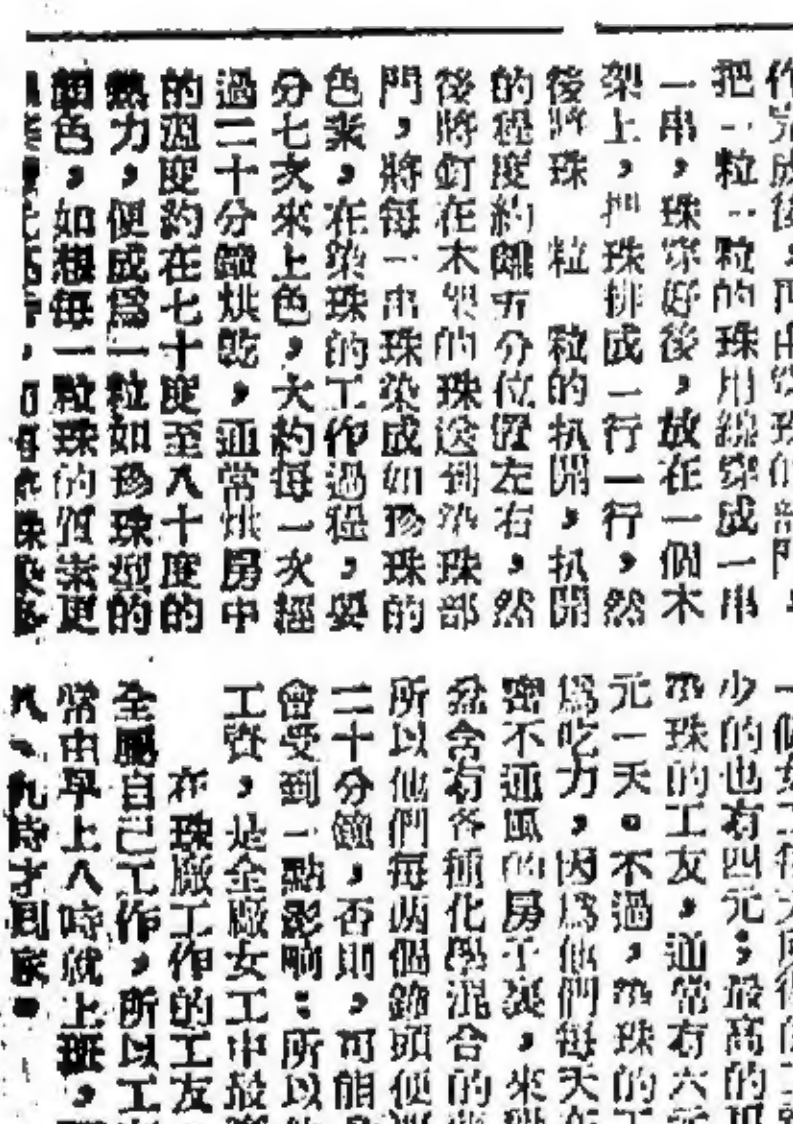 作完成後，再由穿珠的部門，
把一粒一粒的珠用線穿成一串
一串，珠穿好後，放在一個木
架上，把珠排成一行一行，然
後將珠一粒一粒的扒開，扒開
的程度約離五分位置左右，然
後將釘在木架的珠送到染珠部
門，將每一串珠染成如珍珠的
色素，在染珠的工作過程，要
分七次來上色，大約每一次經
過二十分鐘烘乾，通常烘房中
的溫度約在七十度至八十度的
熱力，便成爲一粒如珍珠型的
顏色，如想每一粒珠的質素更
一個女工每天所得的工
少的也有四元，最高的
染珠的工友，通常有六元
元一天。不過，染珠的工
爲吃力，因爲他們每天在
密不通風的房子裏，來
盆含有各種化學混合的
所以他們每兩個鐘頭便
二十分鐘，否則，可能
會受到一點影响；所以
工資，是全廠女工中最
在珠廠工作的工友，
全屬自己工作，所以工
常由早上八時就上班，
八、九時才回家。